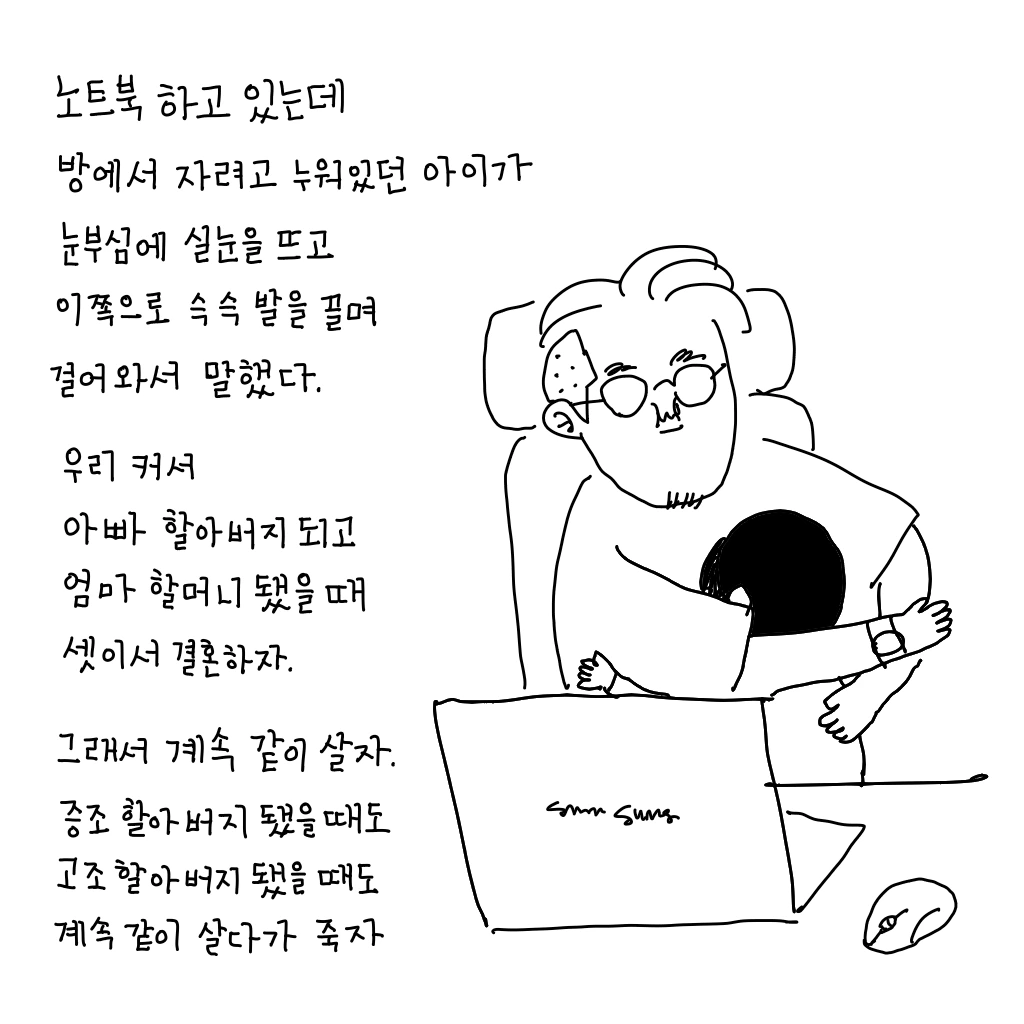 노트북 하고 있는데
방에서 자려고 누워있던 아이가
눈부심에 실눈을 뜨고
이쪽으로 슥슥 발을 끌며
걸어와서 말했다.
우리 커서
아빠 할아버지 되고
엄마 할머니 됐을 때
셋이서 결혼하자.
그래서 계속 같이 살자.
증조 할아버지 됐을때도
고조 할아버지 됐을 때도
계속 같이 살다가 죽자